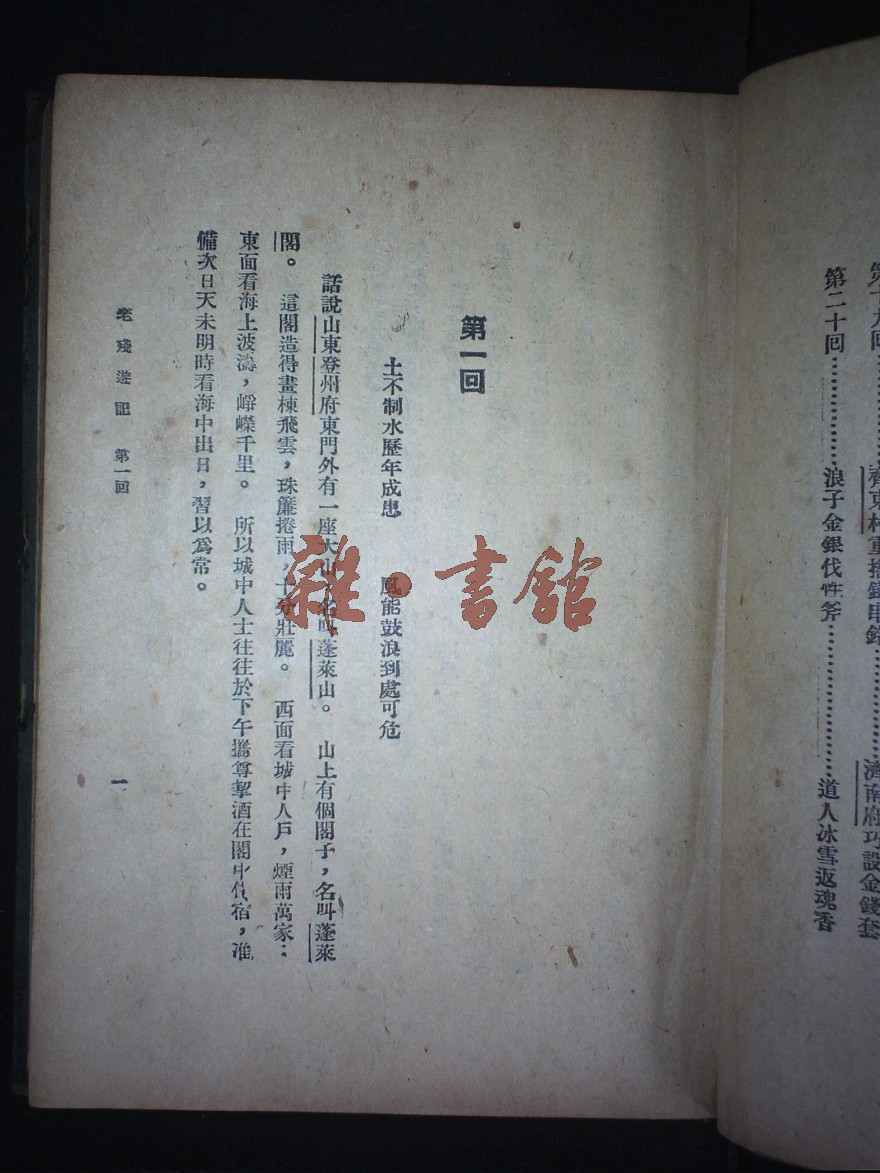 第十九回………………齊東村重搖鐵串鈴………………濟南府巧設金錢套
第二十回………………浪子金銀伐性斧………………道人冰雪返魂香
第一回
土不制水歷年成患　風能鼓浪到處可危
話說山東登州府東門外有一座大山，名叫蓬萊山。　山上有個閣子，名叫蓬萊
閣。　這閣造得畫棟飛雲，珠簾捲雨，十分壯麗。　西面看城中人戶，煙雨萬家：
東面看海上波濤，崢嶸千里。　所以城中人士往往於下午攜尊挈酒在閣中住宿，准
備次日天未明時看海中出日，習以爲常。
老殘遊記　第一回
一
雜·書館